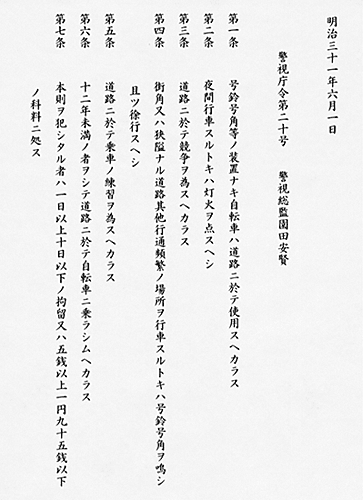 明治三十一年六月一日
警視庁令第二十号　警視総監園田安賢
第一条　号鈴号角等ノ装置ナキ自転車ハ道路ニ於テ使用スヘカラス
第二条　夜間行車スルトキハ灯火ヲ点スヘシ
第三条　道路ニ於テ競争ヲ為スヘカラス
第四条　街角又ハ狭隘ナル道路其他行通頻繁ノ場所ヲ行車スルトキハ号鈴号角ヲ鳴シ
且ツ徐行スヘシ
第五条　道路ニ於テ乗車ノ練習ヲ為スヘカラス
第六条　十二年未満ノ者ヲシテ道路ニ於テ自転車ニ乗ラシムヘカラス
第七条　本則ヲ犯シタル者ハ一日以上十日以下ノ拘留又ハ五銭以上一円九十五銭以下
ノ科料ニ処ス